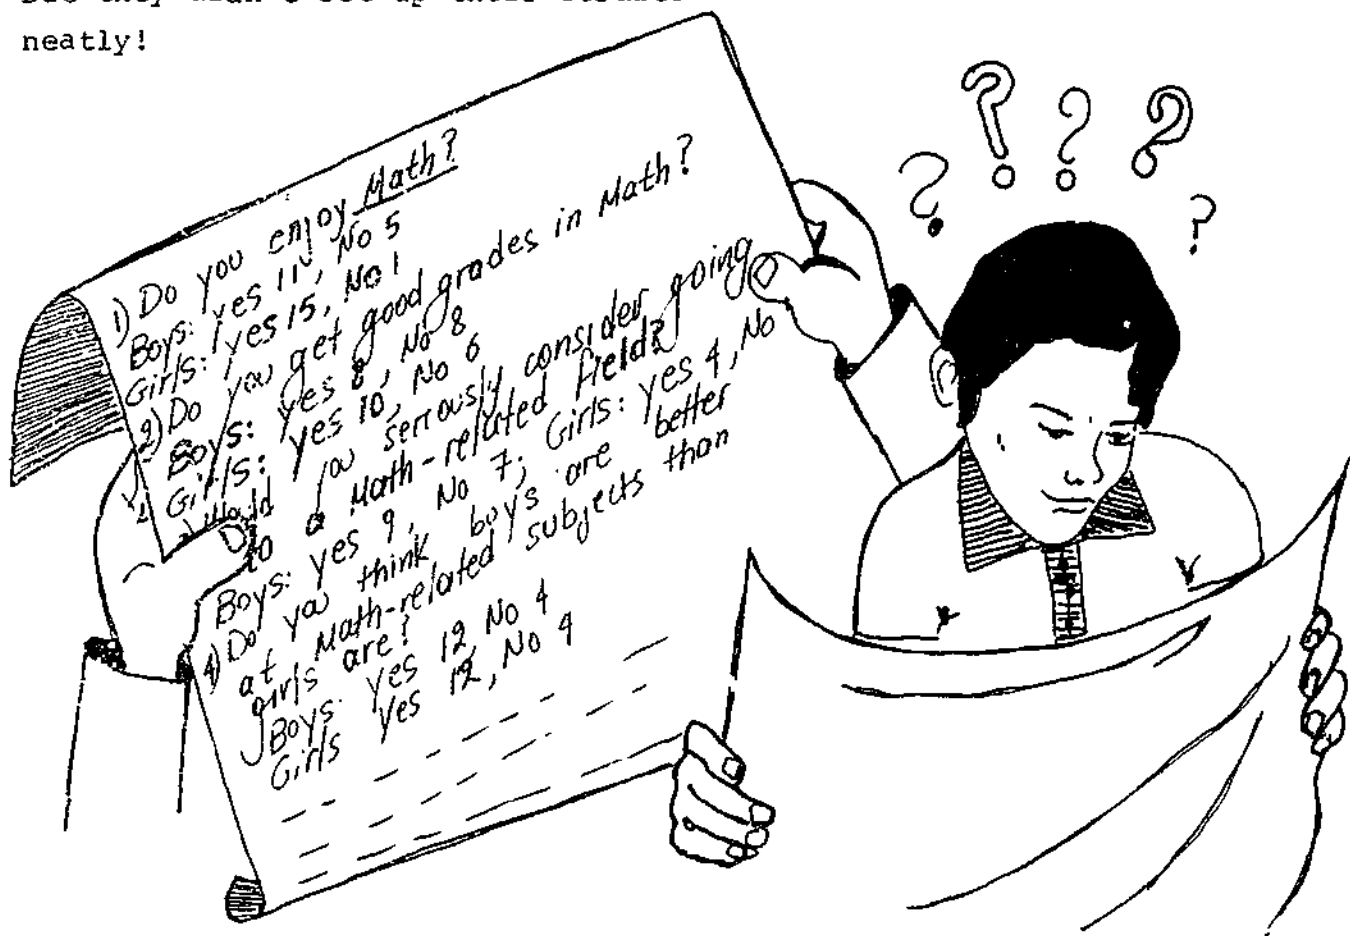 neatly!
1) Do you enjoy Math?
Boys: yes 11, No 5
Girls: yes 15, No 1
2) Do you get good grades in Math?
Boys: yes 8, No 8
Girls: yes 10, No 6
Would you seriously consider going
to a Math-related field?
Boys: yes 9, No 7; Girls: yes 4, No
4) Do you think boys are better
at Math-related subjects than
girls are?
Boys: yes 12, No 4
Girls yes 12, No 4
? ? ? ? ?